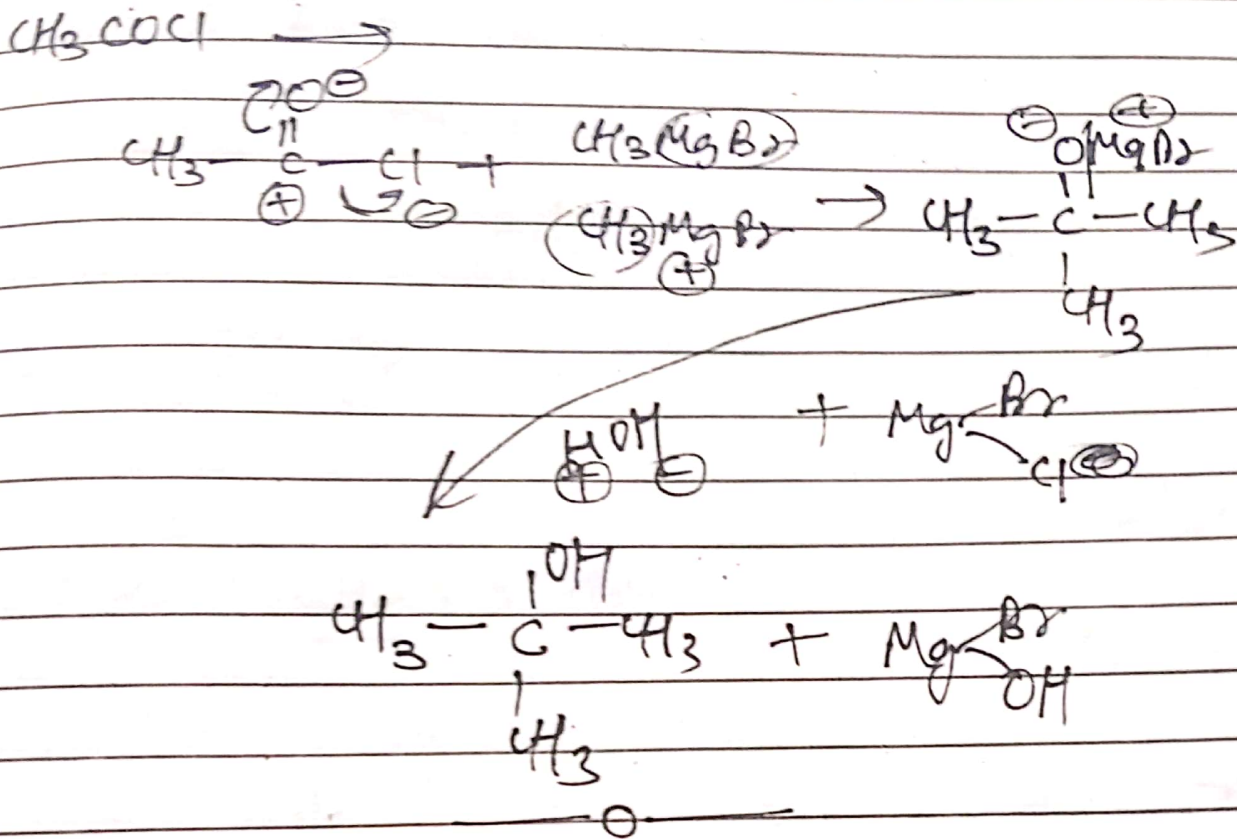 CH3COCl ⟶
O⊖
||
CH3 — C — Cl + CH3MgBr
⊕ ⊖
CH3MgBr
⊕
→
⊖ ⊕
OMgBr
|
CH3 — C — CH3
|
CH3
+ Mg Br
Cl
HOH
⊕ ⊖
OH
|
CH3 — C — CH3 + Mg Br
OH
|
CH3